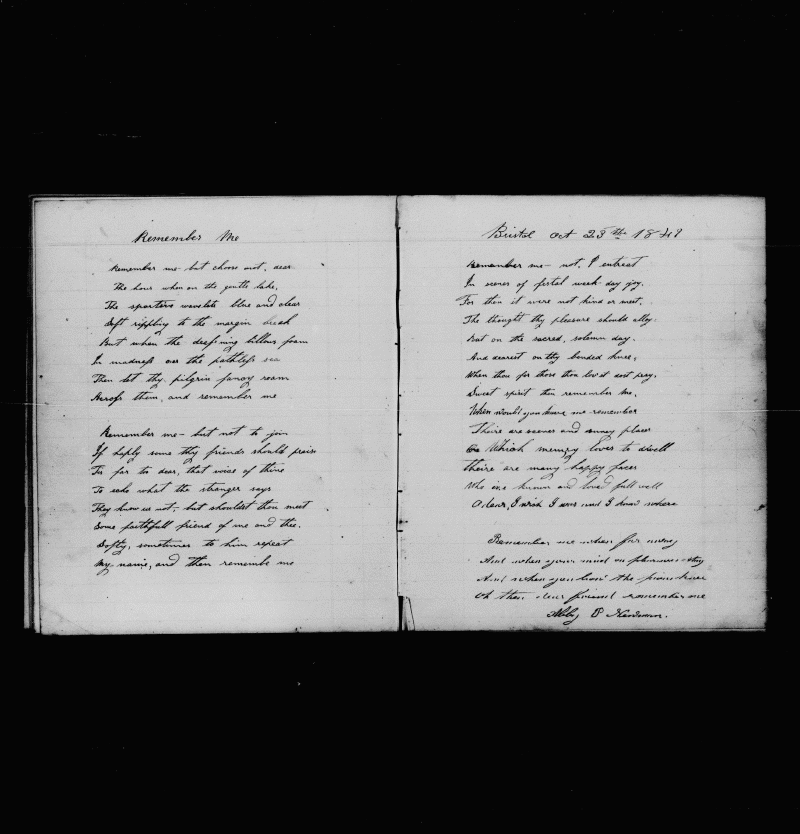 Remember Me
Remember me- but choose not, dear
The hour when on the gentle lake,
The sportive wavelets blue and clear
Soft rippling to the margin break
But when the deepning billows foam
In madness oer the pathless sea
Then let thy pilgrim fancy roam
Across them, and remember me
Remember me- but not to join
If haply some thy friends should praise
Tis far to dear, that voice of thine
To echo what the stranger says
They know us not;- but shouldst thou meet
Some faithfull friend of me and thee.
Softly, sometimes to him repeat
My name, and then remembe me
Bristol Oct 23th 1849
Remember me- not, I entreat
In scenes of festal week-day joy,
For then it were not kind or meet,
The thought thy pleasure should alloy.
But on the sacred, solemn day.
And dearest on thy bended knee,
When thou for those thou lov'st dost pray,
Sweet spirit then remember me,
When would you have me remember
Theire are scenes and sunny places
Which memory loves to dwell
theire are many happy faces
Who one known and loved full well
O dear, I wish I was and I know where
Remember me when far away
And when your mind on
And when you bow the knee
Oh then dear friend remember me
Abby P Newman.